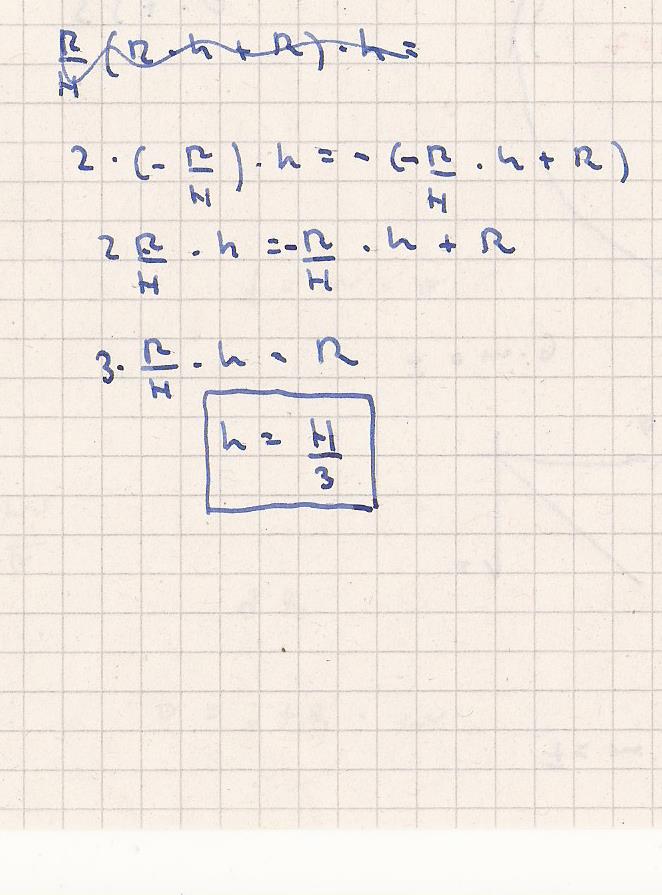 R/H (R · h + R) · h =
2 · (- R/H) · h = - (- R/H · h + R)
2 R/H · h = - R/H · h + R
3 · R/H · h = R
h = H/3